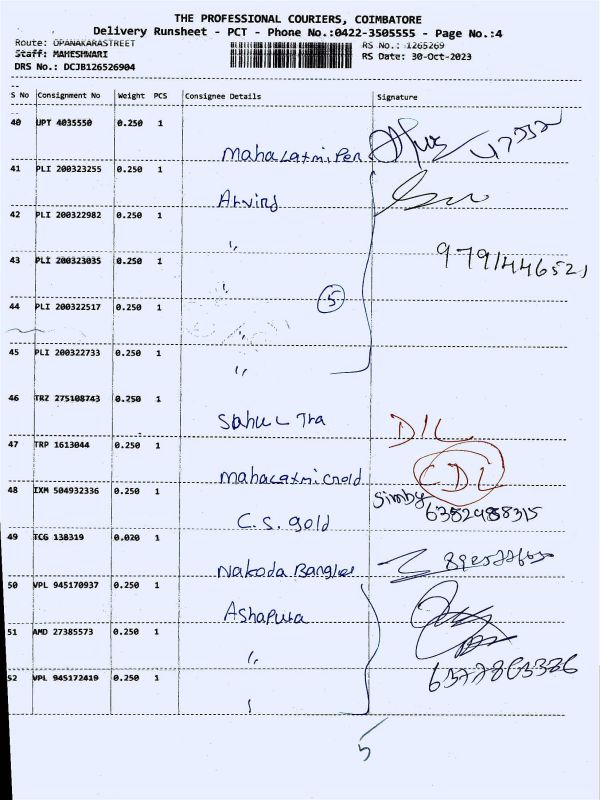 THE PROFESSIONAL COURIERS, COIMBATORE
Delivery Runsheet - PCT - Phone No.:0422-3505555 - Page No.:4
Route: OPANAKARASTREET RS No.: 1265269
Staff: MAHESHWARI RS Date: 30-Oct-2023
DRS No.: DCJB126526904
S No Consignment No Weight PCS Consignee Details Signature
40 UPT 4035550 0.250 1
Mahalaxmi Pen
41 PLI 200323255 0.250 1
Arvind
42 PLI 200322982 0.250 1
"
9791446521
43 PLI 200323035 0.250 1
"
5
44 PLI 200322517 0.250 1
"
45 PLI 200322733 0.250 1
"
46 TRZ 275108743 0.250 1
Sahul Tra D/L
47 TRP 1613044 0.250 1
Mahalaxmi Gold CDL
48 IXM 504932336 0.250 1
C.S. Gold 6382988315
49 TCG 138319 0.020 1
Nakoda Bangles
50 VPL 945170937 0.250 1
Ashapura
51 AMD 27385573 0.250 1
"
6377803326
52 VPL 945172419 0.250 1
5